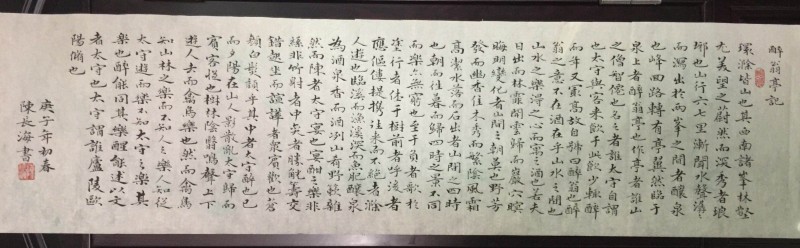 醉翁亭記
環滁皆山也其西南諸峯林壑
尤美望之蔚然而深秀者瑯
琊也山行六七里漸聞水聲潺潺
而瀉出於兩峯之間者釀泉
也峰回路轉有亭翼然臨于
泉上者醉翁亭也作亭者誰山
之僧智僊也名之者誰太守自謂
也太守與客來飲于此飲少輒醉
而年又冣高故自號曰醉翁也醉
翁之意不在酒在乎山水之間也
山水之樂得之心而寓之酒也若夫
日出而林霏開雲歸而巖穴暝
晦明變化者山間之朝暮也野芳
發而幽香佳木秀而繁陰風霜
高潔水落而石出者山間之四時
也朝而往暮而歸四時之景不同
而樂亦無窮也至于負者歌於
塗行者休于樹前者呼後者
應傴僂提攜往來而不絕者滁
人遊也臨溪而漁溪深而魚肥釀泉
為酒泉香而酒洌山肴野蔌雜
然而陳者太守宴也宴酣之樂非
絲非竹射者中奕者勝觥籌交
錯起坐而諠譁者衆賓歡也蒼
顏白髮頹乎其中者太守醉也已
而夕陽在山人影散亂太守歸而
賓客從也樹林陰翳鳴聲上下
遊人去而禽鳥樂也然而禽鳥
知山林之樂而不知人之樂人知從
太守遊而樂不知太守之樂其
樂也醉能同其樂醒能述以文
者太守也太守謂誰廬陵歐
陽脩也
庚子年初春
陳長海書